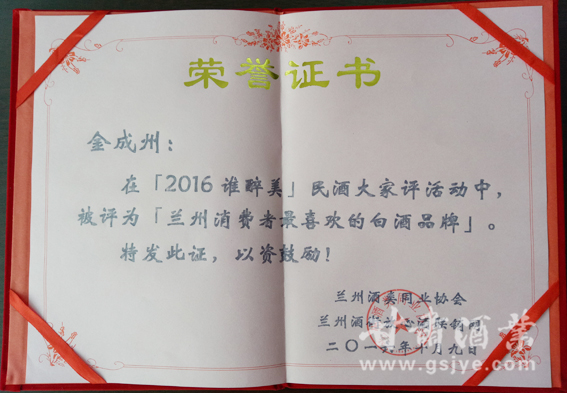 荣誉证书
金成州：
在「2016谁醉美」民酒大家评活动中，
被评为「兰州消费者最喜欢的白酒品牌」。
特发此证，以资鼓励！
兰州酒类同业协会
兰州酒
二〇一六年十月九日
甘肃酒业
www.gsjye.com